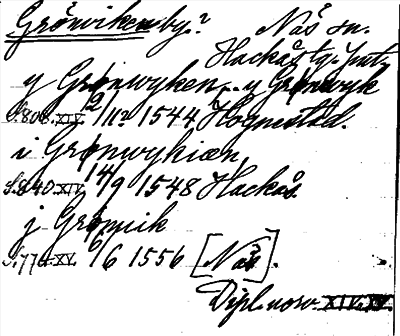 Grönviken by.? Näs sn.
Hackås tg. Jmtl.
y Grønwyken, .. y Grønwyk
S. 808. XIV. 12/11? 1544 Hognestad.
i Grønwykiæn,
S. 840. XIV. 14/9 1548 Hackås.
j Grønuik
S. 774. XV. 6/6 1556 [Näs].
Dipl. norv. XIV. XV.